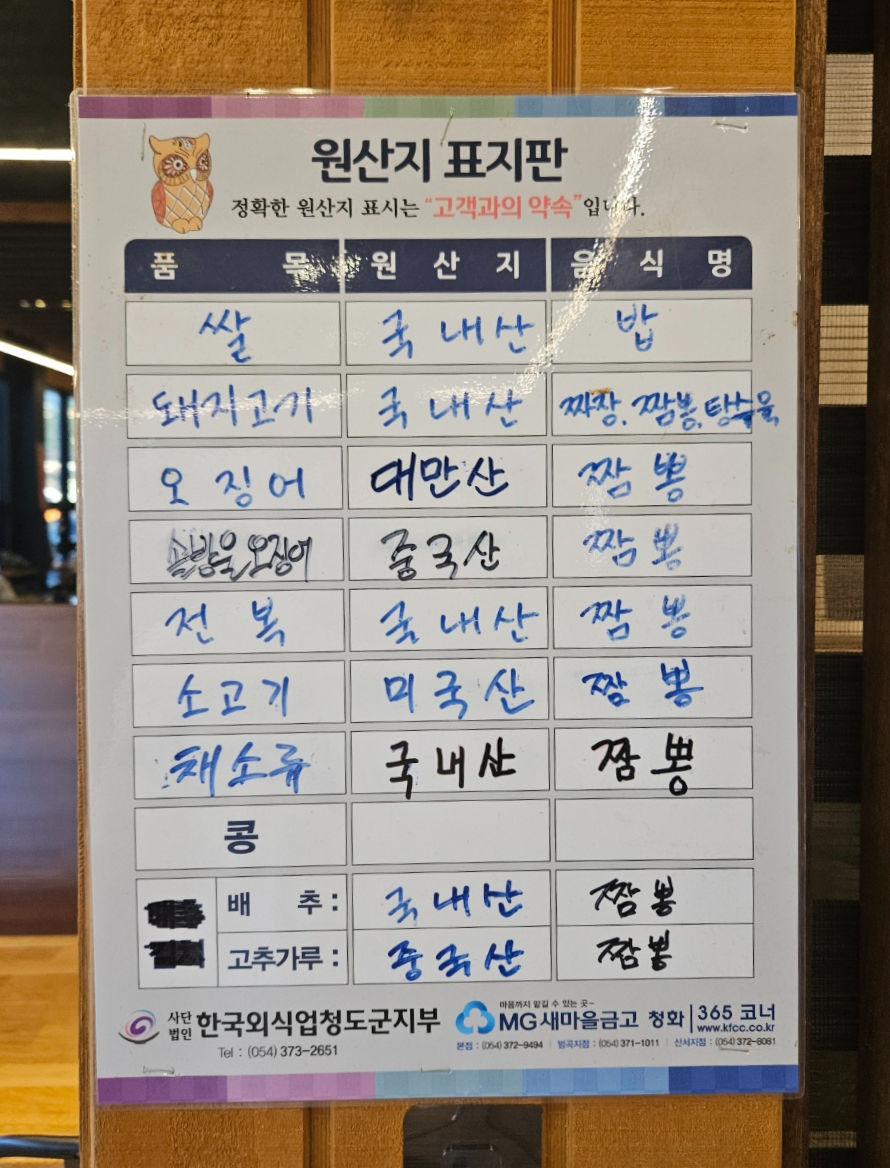 원산지 표지판
정확한 원산지 표시는 "고객과의 약속"입니다.
품 목 원 산 지 음 식 명
쌀 국내산 밥
돼지고기 국내산 짜장, 짬뽕, 탕수육
오징어 대만산 짬뽕
솔방울오징어 중국산 짬뽕
전복 국내산 짬뽕
소고기 미국산 짬뽕
채소류 국내산 짬뽕
콩
배 추 : 국내산 짬뽕
고추가루 : 중국산 짬뽕
사단법인 한국외식업청도군지부
Tel : (054) 373-2651
마음까지 맡길 수 있는 곳~
MG새마을금고 청화 365 코너
www.kfcc.co.kr
본점 : (054) 372-9494 범곡지점 : (054) 371-1011 산서지점 : (054) 372-8081